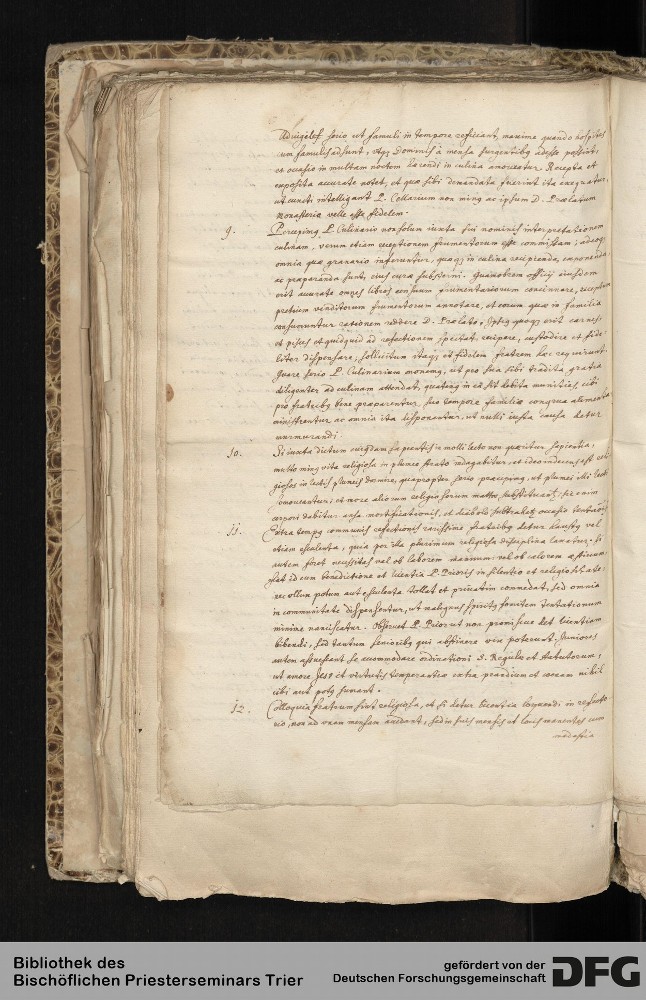 Advigilet serio ut famuli in tempore reficiant, maxime quando hospites
cum famulis adsunt, utq; Dominis à mensa surgentibq adesse possint,
et occasio in multam noctem haerendi in culina amoveatur. Recepta et
exposita accurate notet, et quae sibi demandata fuerint ita exequatur,
ut cuncti intelligant P. Cellarium non minq ac ipsum D. Praelatum
Monasterio velle esse fidelem.
9. Percipimq P. Culinario non solum iuxta sui nominis interpretationem
culinam, verum etiam receptionem frumentorum esse commissam; adeoq;
omnia quae granario inferuntur, quaeq; in culina recipienda, exponenda
ac praeparanda sunt, eius cura subserviri. Quamobrem officij eiusdem
erit accurate omnes libros censuum frumentariorum concinnare, receptum
pretium venditorum frumentorum annotare, et eorum quae in familia
consumuntur rationem reddere D. Praelato, Ipsiq quoq; erit carnes
et pisces et quidquid ad refectionem spectat, recipere, custodire et fide-
liter dispensare, sollicitum itaq; et fidelem fratrem haec requirunt.
Quare serio P. Culinarium monemq, ut pro sua sibi tradita gratia
diligenter ad culinam attendat, quatenq in ea sit debita munditia, cibi
pro fratribq bene praeparentur, suo tempore familiae congrua alimenta
ministrentur ac omnia ita disponantur, ut nulli iusta causa detur
murmurandi.
10. Si iuxta dictum cuiusdam sapientis in molli lecto non quaeritur sapientia,
multo minq vita religiosa in plumeo strato indagabitur, et ideo indecens est reli-
giosos in lectis plumeis dormire, quapropter serio praecipimq, ut plumei illi lecti
amoveantur, et more aliorum religiosorum mattae substituantur; sic enim
corpori dabitur ansa mortificationis, et diabolo subtrahetur occasio tentationis.
11. Extra tempq communis refectionis rarissime fratribq detur haustq vel
etiam esculenta, quia per illa plurimum religiosa disciplina laeditur. Si
autem foret necessitas vel ob laborem manuum vel ob calorem aestivum,
fiat id cum benedictione et licentia P. Prioris in silentio et religiositate,
nec ollum potum aut esculenta tollat et privatim comedat, sed omnia
in communitate dispensentur, ut malignus spiritq fomitem tentationum
minime nanciscatur. Observet P. Prior ut non promiscue det licentiam
bibendi, sed tantum senioribq qui abstinere vix poterunt, Juniores
autem assuescant se accommodare ordinationi S. Regulae et statutorum,
ut amore Jesu et virtutis temperantiae extra prandium et coenam nihil
cibi aut potq sumant.
12. Colloquia fratrum sint religiosa, et si detur licentia loquendi in refecto-
rio, non ad unam mensam accedant, sed in suis mensis et locis manentes cum
modestia
Bibliothek des
Bischöflichen Priesterseminars Trier
gefördert von der
Deutschen Forschungsgemeinschaft
DFG